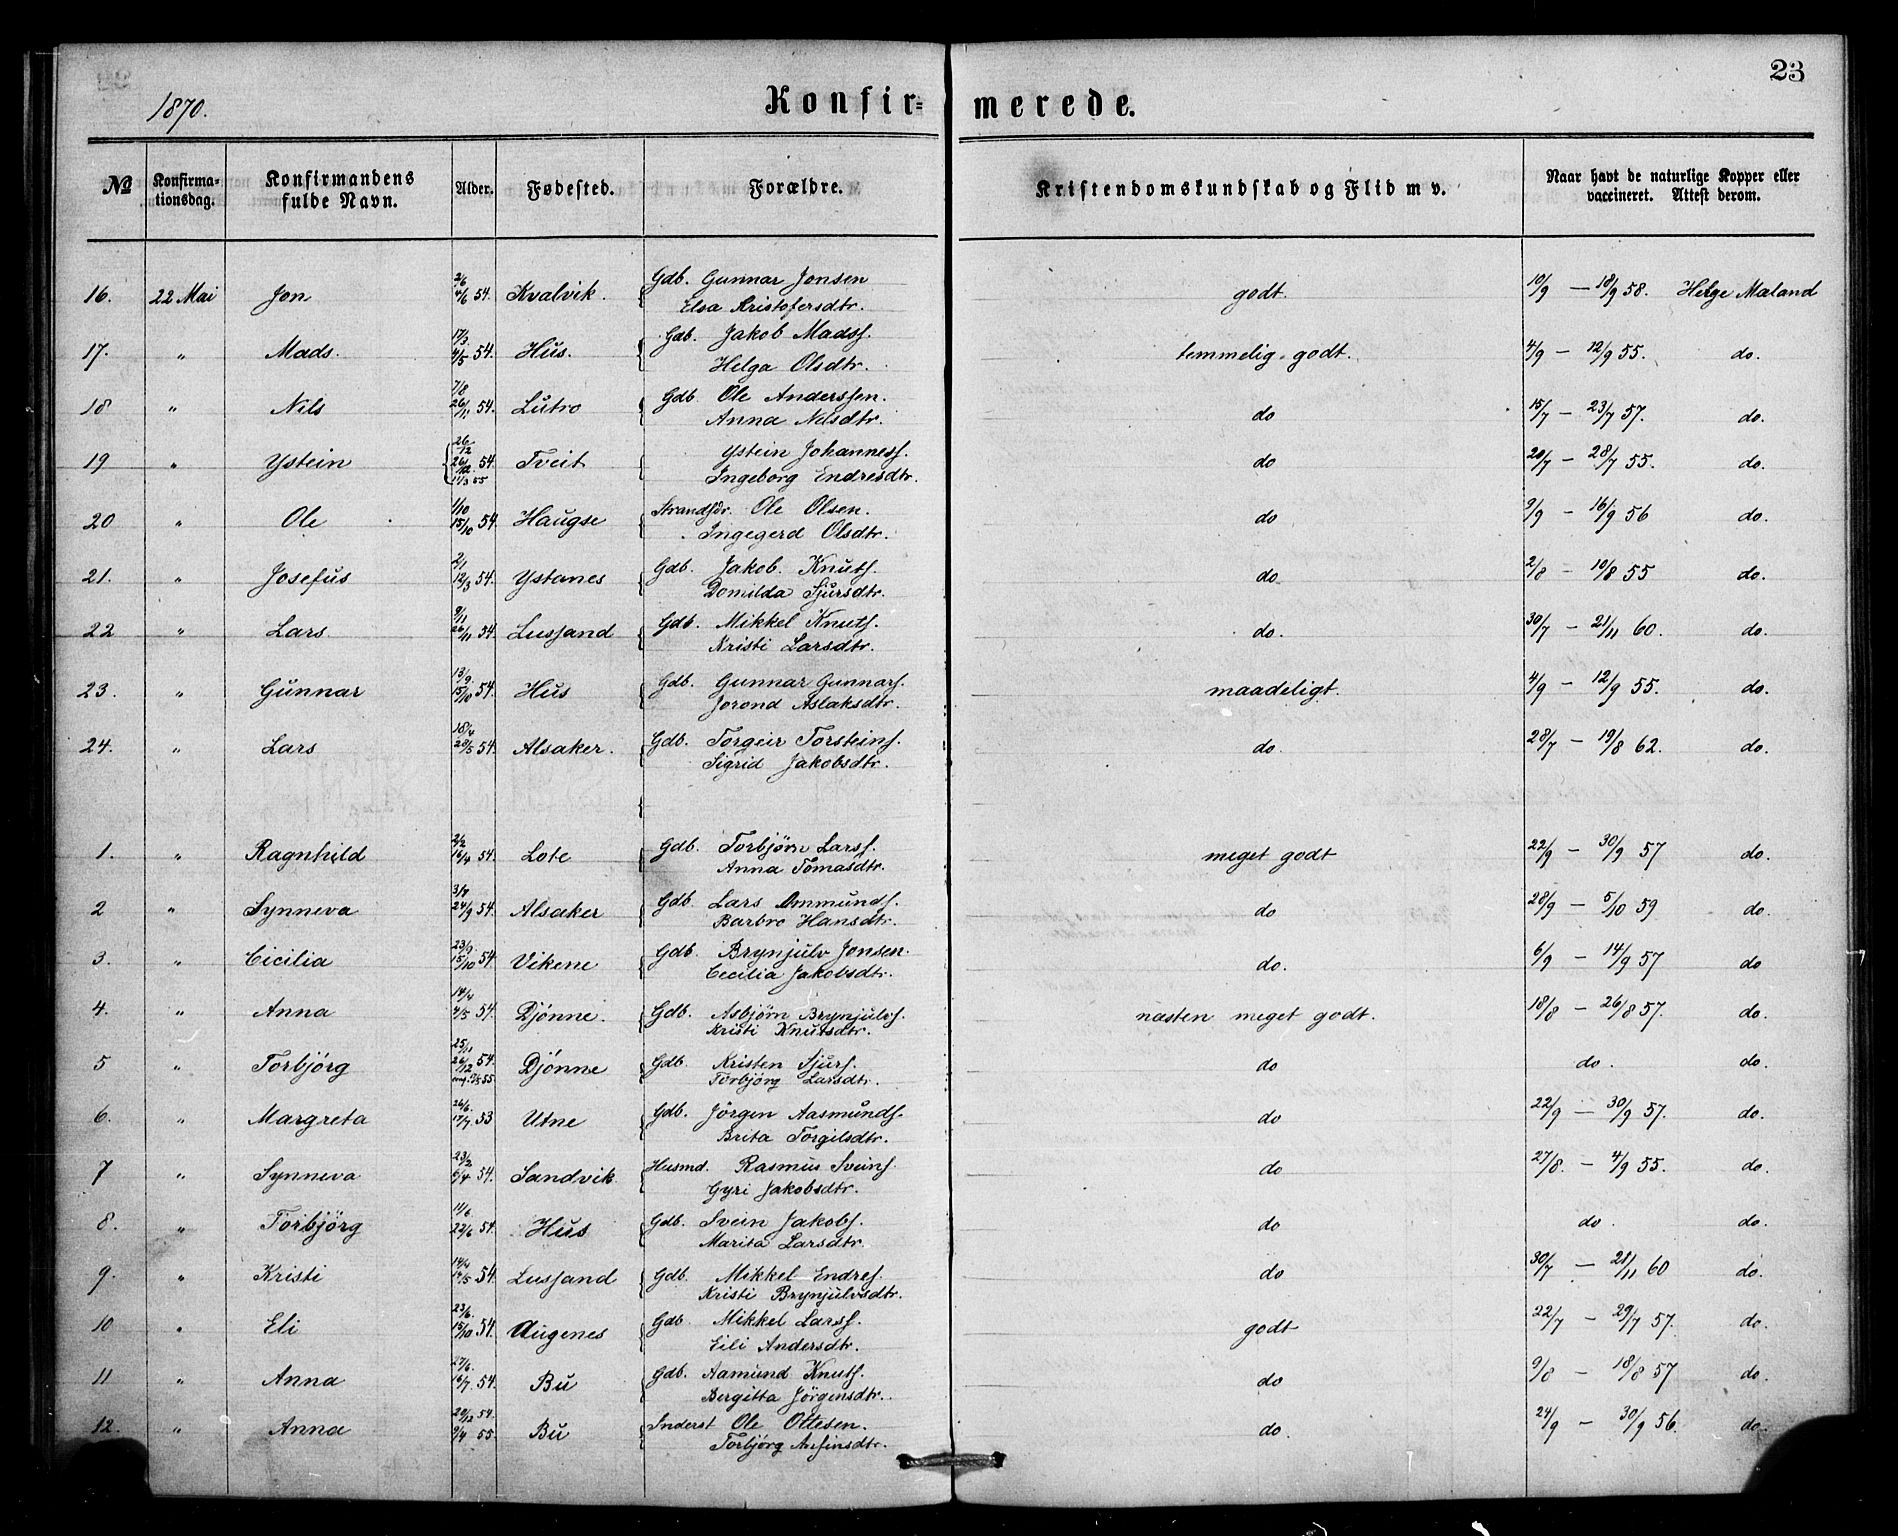 23
1870.
Konfir= merede.
№ Konfirma-tionsdag. Konfirmandens fulde Navn. Alder. Fødested. Forældre. Kristendomskundskab og Flid m v. Naar havt de naturlige Kopper eller vaccineret. Attest derom.
16. 22 Mai Jon 2/6 4/6 54. Kvalvik. Gdb. Gunnar Jonsen godt. 10/9 — 18/9 58. Helge Mæland
Elsa Kristofersdtr.
17. " Mads. 17/3 4/5 54. Hus. Gdb. Jakob Madss. temmelig godt. 4/9 — 12/9 55. do.
Helga Olsdtr.
18 " Nils 7/8 26/11 54. Lutro Gdb. Ole Anderssen. do 15/7 — 23/7 57. do.
Anna Nilsdtr.
19 " Ystein 26/12 26/12 54. 11/3 55 Tveit Ystein Johanness. do 20/7 — 28/7 55. do.
Ingeborg Endresdtr.
20 " Ole 1/10 15/10 54. Haugse Strandsdr. Ole Olsen. do 9/9 — 16/9 56 do.
Ingegerd Olsdtr.
21. " Josefus 2/1 12/3 54. Ystanes Gdb. Jakob Knuts. do 2/8 — 10/8 55 do.
Domilda Sjursdtr.
22 " Lars 9/11 26/11 54. Lussand Gdb. Mikkel Knuts. do. 30/7 — 21/11 60. do.
Kristi Larsdtr.
23. " Gunnar 13/9. 15/10 54. Hus Gdb. Gunnar Gunnars. maadeligt. 4/9 — 12/9 55. do.
Jorond Aslaksdtr.
24. " Lars 18/4 28/5 54. Alsaker. Gdb. Torgeir Torsteins. do. 28/7 — 19/8 62. do.
Sigrid Jakobsdtr.
1. " Ragnhild 2/2 16/4 54. Lote Gdb. Torbjörn Larss. meget godt 22/9 — 30/9 57 do.
Anna Tomasdtr.
2 " Synneva 24/9 54. Alsaker Gdb. Lars Ommunds. do 28/9 — 5/10 59 do.
Barbro Hansdtr.
3. " Cicilia 23/9. 15/10 54. Vikene Gdb. Brynjulv Jonsen. do. 6/9 — 14/9 57 do
Cecilia Jakobsdtr.
4. " Anna 14/4 4/5 54. Djönne. Gdb. Asbjörn Brynjulvs. næsten meget godt. 18/8 — 26/8 57. do.
Kristi Knutsdtr.
5 " Torbjörg 25/11 26/12 54. Djönne Gdb. Kristen Sjurs. do do. do.
Torbjörg Larsdtr.
6. " Margreta 26/6. 17/7 53 Utne Gdb. Jörgen Aasmunds. do 22/9 — 30/9 57. do.
Brita Torgilsdtr.
7 " Synneva 23/2 6/4 54. Sandvik Husmd. Rasmus Sveins. do 27/8. — 4/9 55. do.
Gyri Jakobsdtr.
8. " Torbjörg 11/6. 22/6 54. Hus Gdb. Svein Jakobs. do do. do.
Marita Larsdtr.
9. " Kristi 14/4 14/5 54. Lussand Gdb. Mikkel Endres. do 30/7 — 21/11 60 do.
Kristi Brynjulvsdtr.
10 " Eli 23/6. 15/10 54. Augenes Gdb. Mikkel Larss. godt 22/7 — 29/7 57. do.
Eili Andersdtr.
11 " Anna 27/6. 16/7 54. Bu Gdb. Aamund Knuts. do 9/8 — 18/8 57 do.
Bergitta Jörgensdtr.
12. " Anna 20/12 54. 9/4 55 Bu Inderst Ole Ottesen. do. 24/9 — 30/9 56. do.
Torbjörg Anfinsdtr.